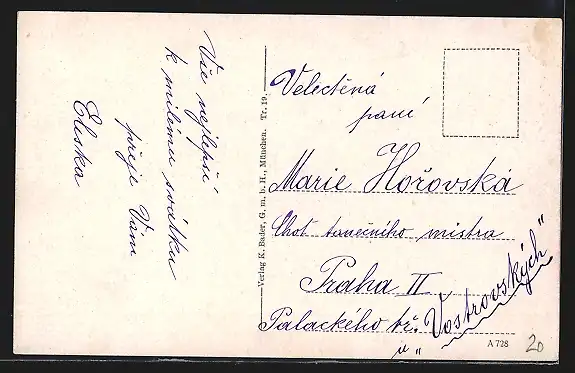 Vše nejlepší
k milému svátku
přeje Vám
Eliska
Verlag K. Bader, G. m. b. H., München. Tr. 19.
Velectěná
paní
Marie Hořovská
Choť tanečního mistra
Praha II
Palackého tř.
u „Vostrovských"
A 728
20